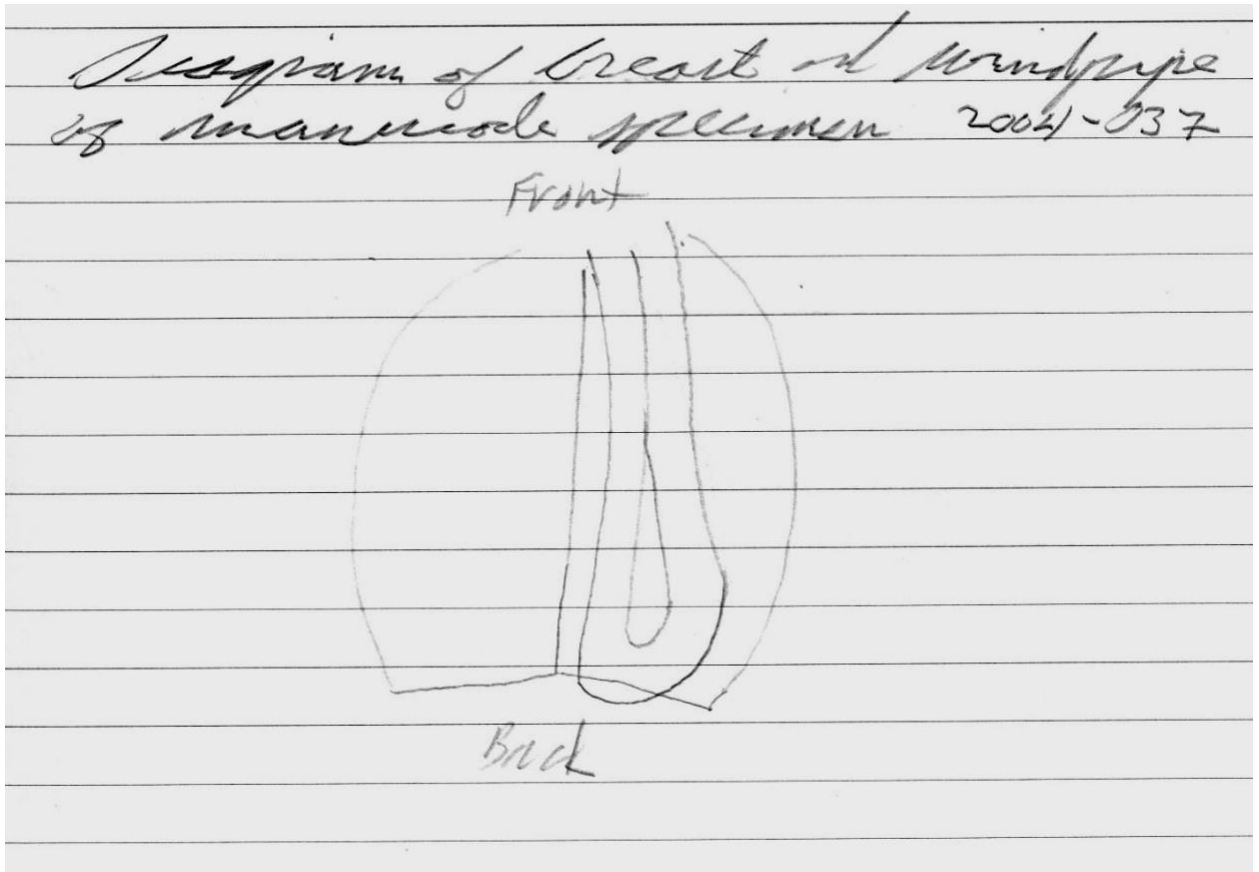 Diagram of breast and windpipe
of manucode specimen 2004-037
Front
Back